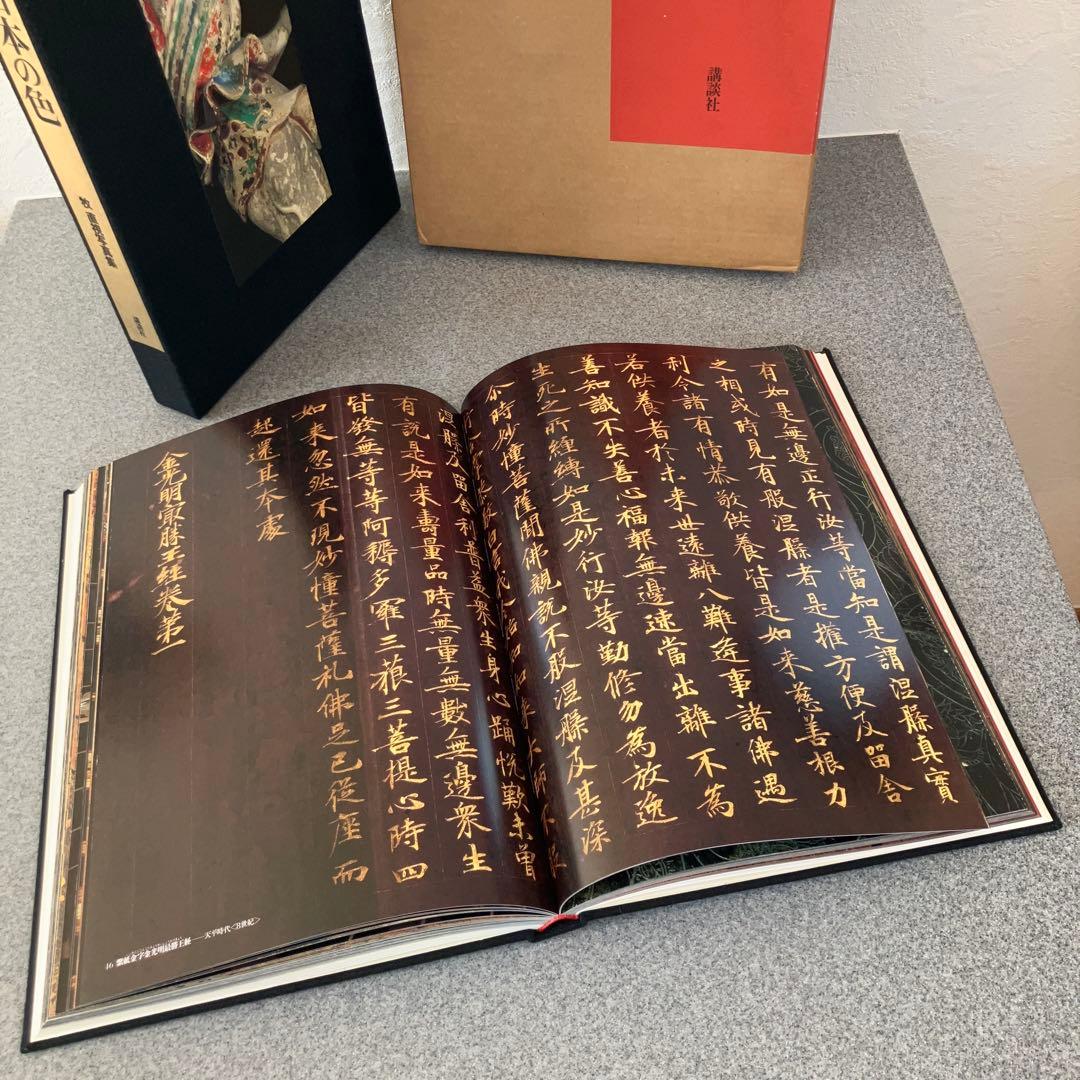 本の色
牧 直視写真集
講談社
講談社
有如是無邊正行汝等當知是謂涅槃真實
之相或時見有般涅槃者是權方便及留舍
利令諸有情恭敬供養皆是如來慈善根力
若供養者於未來世遠離八難逢事諸佛遇
善知識不失善心福報無邊速當出離不為
生死之所纏縛如是妙行汝等勤修勿為放逸
尒時妙幢菩薩聞佛親說不般涅槃及甚深
涅槃及留舍利普益衆生身心踊悅歎未曾
有說是如来壽量品時無量無數無邊衆生
皆發無等等阿耨多羅三藐三菩提心時四
如来忽然不現妙幢菩薩礼佛足已從座而
起還其本處
金光明最勝王經卷第一
46 紫紙金字金光明最勝王経——天平時代<8世紀>